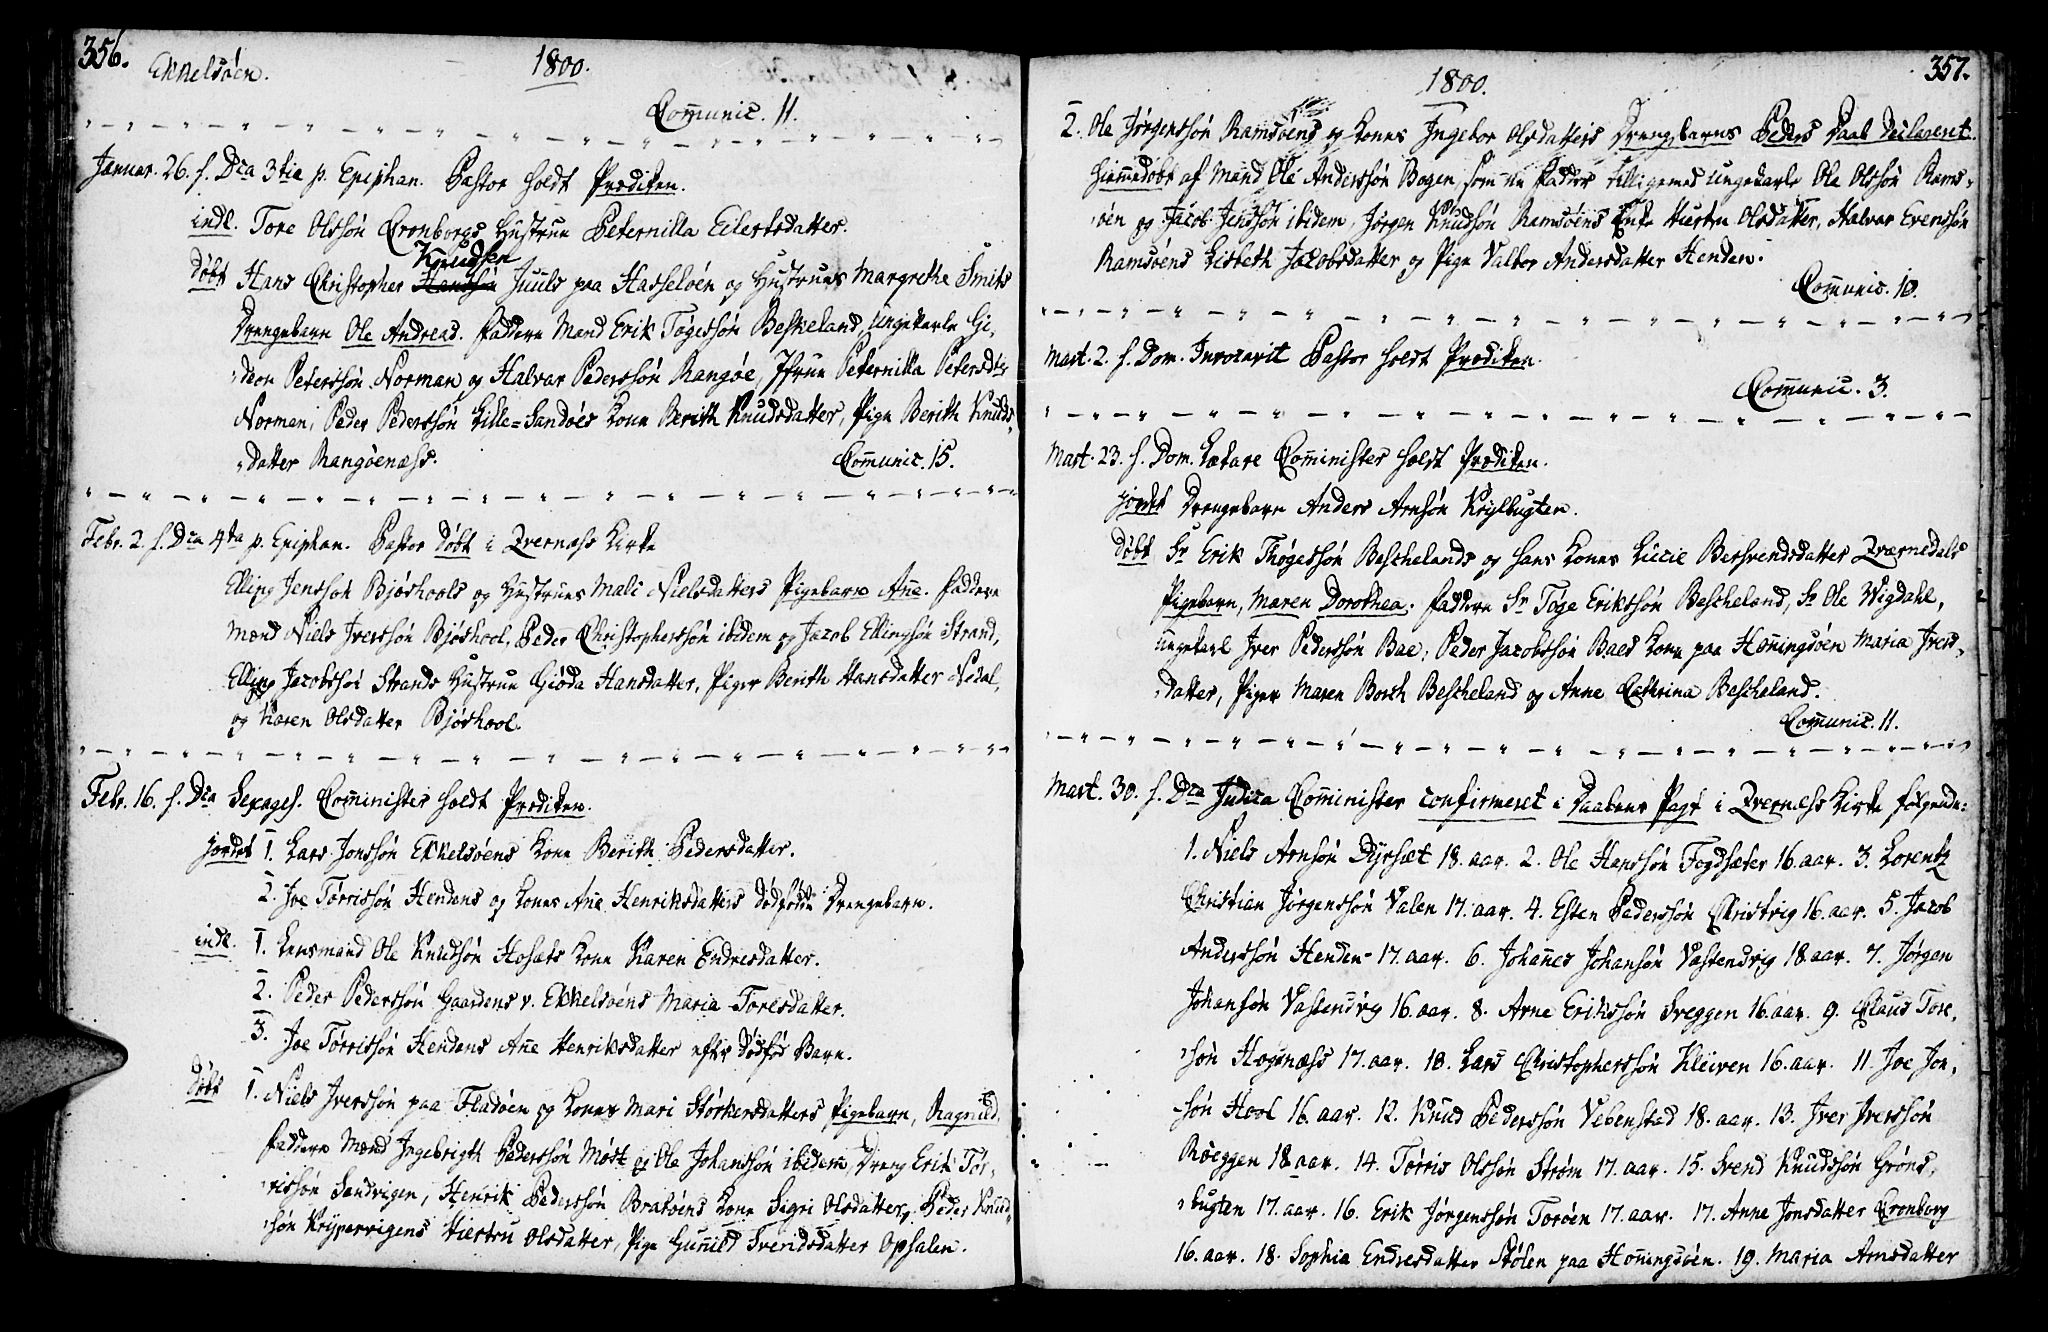 356.
Ekkelsöen.
1800.
Com̄unic. 11.
Januar. 26. f. Dca 3tia p. Epiphan. Pastor holdt Prædiken.
indl. Tore Olssön Cronborgs Hustrue Peternilla Eilertsdatter.
Knudsen
döbt Hans Christopher Hanssön Juuls paa Hasselöen og Hustrues Margrethe Smits
Drengebarn Ole Andreas. Faddere Mand Erik Tögessön Beskeland, Ungekarle Gi-
deon Peterssön Norman og Halvar Pederssön Rangöe, Jfrue Peternilla Petersdtr
Norman, Peder Pederssön Lille-Sandöes Kone Berith Knudsdatter, Pige Berith Knuds-
datter Rangöenæss.
Com̄unic. 15.
Febr. 2. f. Dca 4ta p. Epiphan. Pastor döbt i Qvernæss Kirke
Elling Jenssön Bjöshools og Hustrues Mali Nielsdatters Pigebarn Añe. Faddere
Mænd Niels Iverssön Bjöshool, Peder Christopherssön ibidem og Jacob Ellingsön Strand,
Elling Jacobssön Strands Hustrue Giöda Hansdatter, Piger Berith Hansdatter Nedal,
og Karen Olsdatter Bjöshool.
Febr. 16. f. Dca Sexages. Com̄inister holdt Prædiken.
jordet 1. Lars Jonssön Ekkelsöens Kone Berith Pedersdatter.
2. Joe Törrissön Hendens og Kones Añe Henriksdatters dödfödde Drengebarn.
indl. 1. Lensmand Ole Knudsön Hosæts Kone Karen Endresdatter.
2. Peder Pederssön Gaardens v. Ekkelsöens Maria Toresdatter.
3. Joe Törrissön Hendens Añe Henriksdatter efter dödföd Barn.
Döbt 1. Niels Iverssön paa Fladöen og Kones Mari Störkersdatters Pigebarn, Ragnild,
Faddere Mænd Ingebrigth Pederssön Möst og Ole Johanssön ibidem, Dreng Erik Tör-
rissön Sandvigen, Henrik Pederssön Bratöens Kone Sigri Olsdatter, Peder Knud-
sön Krypervigens Hiestru Olsdatter, Pige Gunild Svendsdatter Opsalen.
357.
1800.
2. Ole Jörgenssön Ramsöens og Kones Ingebor Olsdatters Drengebarns Peders Daab Declareret
Hjemmedöbt af Mand Ole Anderssön Bogen, som nu Fadder tilligemed Ungekarle Ole Olssön Rams-
öen og Jacob Jenssön ibidem, Jörgen Knudssön Ramsöens Enke Hustru Olsdatter, Halvar Evenssön
Ramsöens Lisbeth Jacobsdatter og Pige Valbor Andersdatter Henden.
Com̄unic. 10.
Mart. 2. f. Dom. Invocavit Pastor holdt Prædiken.
Com̄unic. 3.
Mart. 23. f. Dom. Lætare Com̄inister holdt Prædiken.
jordet Drengebarn Anders Arnsön Krylbugten.
Döbt Sr Erik Thögessön Beschelands og hans Kones Lucie Bersvendsdatter Qværnedals
Pigebarn, Maren Dorothea. Faddere Sr Töge Erikssön Bescheland, Sr Ole Wigdahl,
Ungekarl Iver Pederssön Bae, Peder Jacobssön Baes Kone paa Honingsöen Maria Ivers-
datter, Piger Maren Borch Bescheland og Anne Cathrina Bescheland.
Com̄unic. 11.
Mart. 30. f. Dca Judica Com̄inister confirmeret i Daabens Pagt i Qvernæss Kirke fölgende:
1. Niels Arnsön Dyrsæt 18. aar. 2. Ole Hanssön Fogdsæter 16 aar. 3. Lorentz
Christian Jörgenssön Valen 17. aar. 4. Esten Pederssön Christvig 16. aar. 5. Jacob
Anderssön Henden 17. aar. 6. Johañes Johansön Vastendvig 18 aar. 7. Jörgen
Johansön Vastendvig 16. aar. 8. Arne Erikssön Sveggen 16. aar. 9. Claus Tore-
sön Hogsnæss 17. aar. 10. Lars Christopherssön Kleiven 16. aar. 11. Joe Jon-
sön Hool 16. aar. 12. Knud Pederssön Vebenstad 18. aar. 13. Iver Iverssön
Röeggen 18 aar. 14. Törris Olssön Ström 17. aar. 15. Svend Knudssön Gröns-
bugten 17. aar. 16. Erik Jörgenssön Toröen 17. aar. 17. Anne Jonsdatter Cronborg
16. aar. 18. Sophia Endresdatter Stölen paa Honingsöen. 19. Maria Arnsdatter